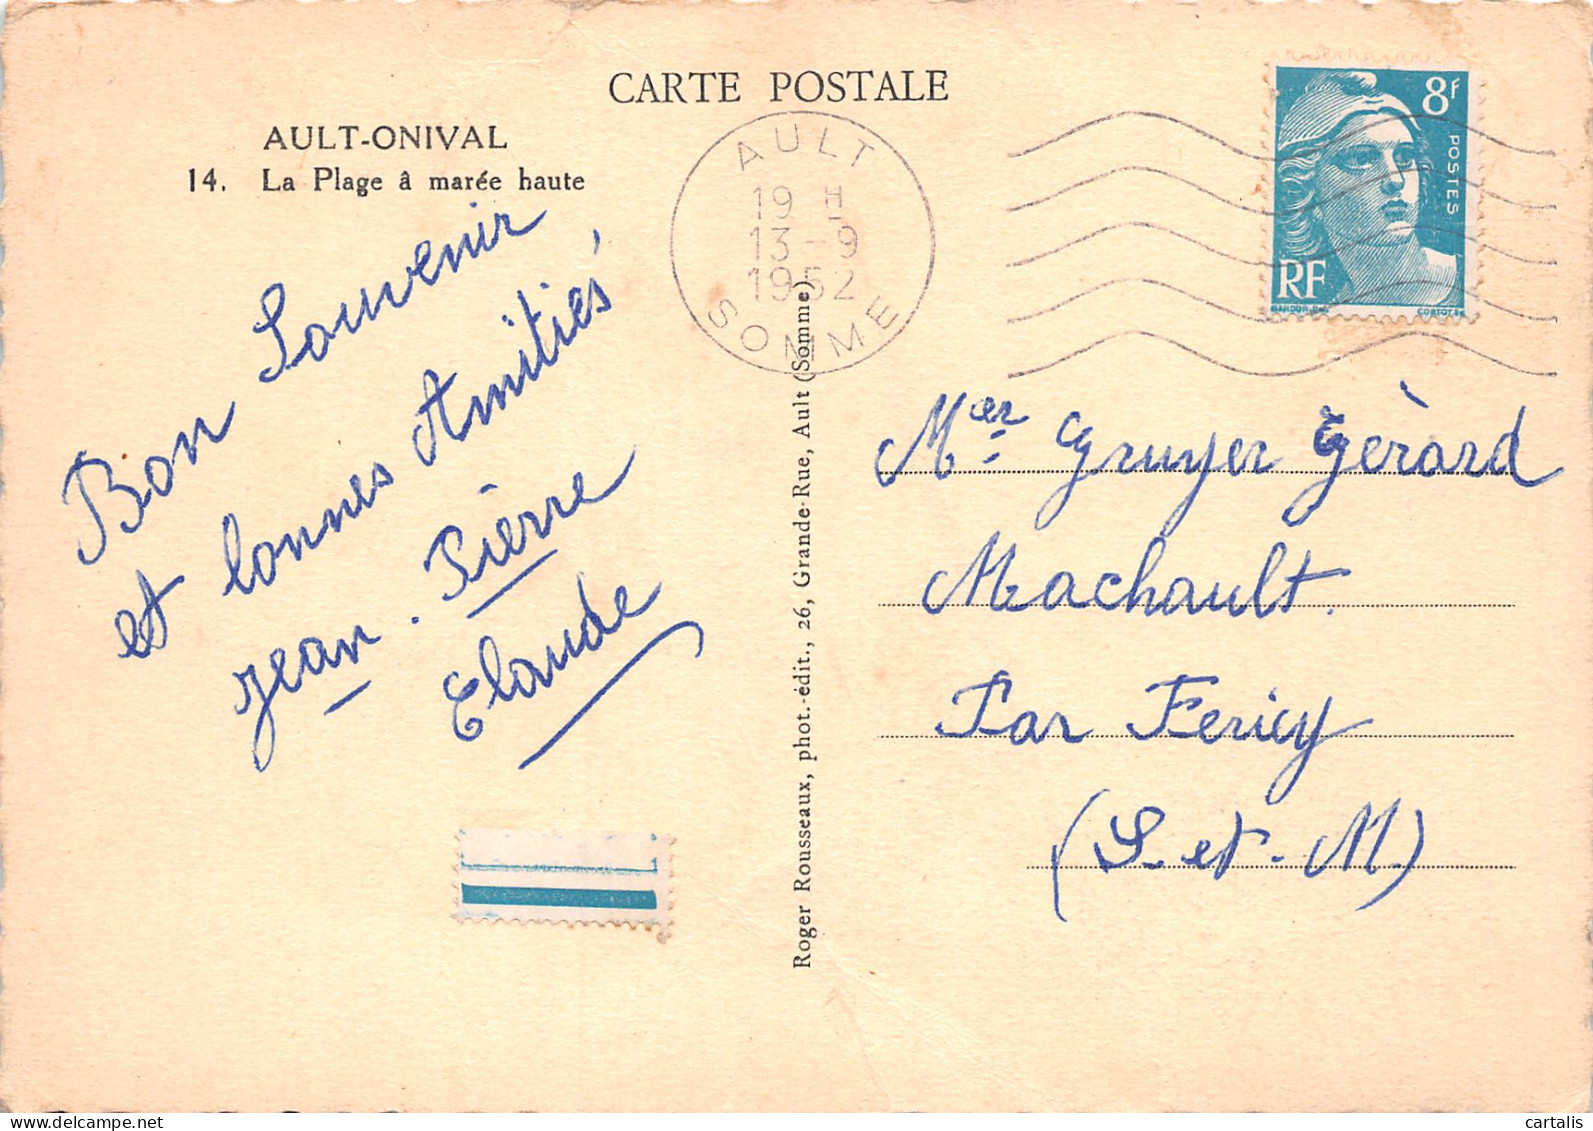 CARTE POSTALE
AULT-ONIVAL
14. La Plage à marée haute
AULT
19 H
13-9
1952
SOMME
8f
POSTES
RF
GANDON.DEL.
CORTOT.SC
Bon Souvenir
et bonnes Amitiés,
Jean. Pierre
Claude
Roger Rousseaux, phot.-édit., 26, Grande-Rue, Ault (Somme)
Mer. Gruyer Gèrard
Machault.
Par Fericy
(S.et.M.)
www.delcampe.net
cartalis